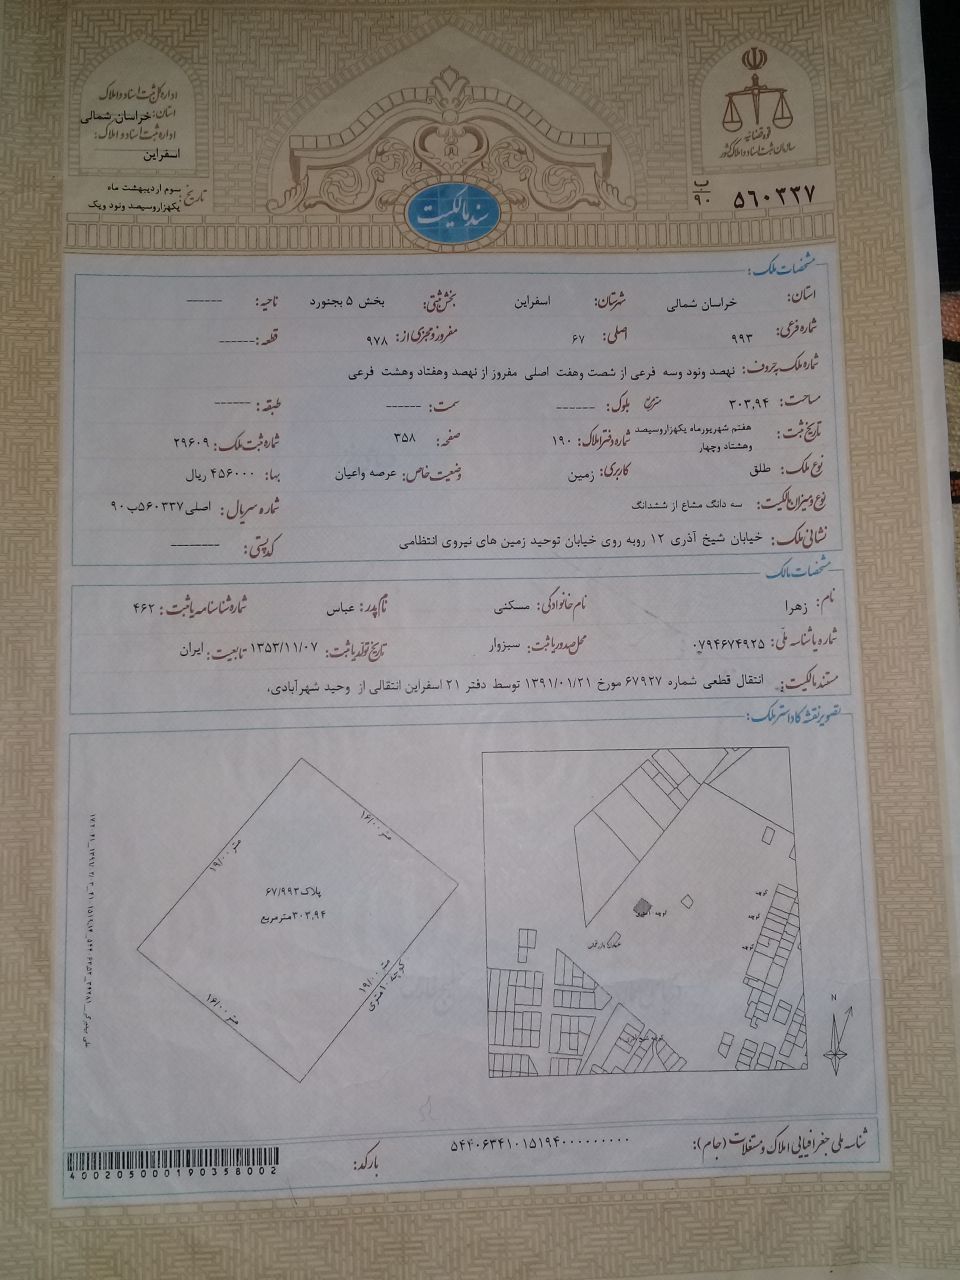 قوه قضائیه
سازمان ثبت اسناد و املاک کشور
۵۶۰۳۳۷ ب ۹۰
اداره کل ثبت اسناد و املاک
استان: خراسان شمالی
اداره ثبت اسناد و املاک:
اسفراین
تاریخ: سوم اردیبهشت ماه
یکهزاروسیصد ونود ویک
سند مالکیت
مشخصات ملک:
استان: خراسان شمالی شهرستان: اسفراین بخش ثبتی: بخش ۵ بجنورد ناحیه: ------
شماره فرعی: ۹۹۳ اصلی: ۶۷ مفروز و مجزی از: ۹۷۸ قطعه: ------
شماره ملک به حروف: نهصد ونود وسه فرعی از شصت وهفت اصلی مفروز از نهصد وهفتاد وهشت فرعی
مساحت: ۳۰۳,۹۴ متر مربع بلوک: ------ سمت: ------ طبقه: ------
تاریخ ثبت: هفتم شهریورماه یکهزاروسیصد وهشتاد وچهار شماره دفتر املاک: ۱۹۰ صفحه: ۳۵۸ شماره ثبت ملک: ۲۹۶۰۹
نوع ملک: طلق کاربری: زمین وضعیت خاص: عرصه واعیان بها: ۴۵۶۰۰۰ ریال
نوع و میزان مالکیت: سه دانگ مشاع از ششدانگ شماره سریال: اصلی۵۶۰۳۳۷ب۹۰
نشانی ملک: خیابان شیخ آذری ۱۲ روبه روی خیابان توحید زمین های نیروی انتظامی کد پستی: --------
مشخصات مالک
نام: زهرا نام خانوادگی: مسکنی نام پدر: عباس شماره شناسنامه یا ثبت: ۴۶۲
شماره یا شناسه ملی: ۰۷۹۴۶۷۴۹۲۵ محل صدور یا ثبت: سبزوار تاریخ تولد یا ثبت: ۱۳۵۳/۱۱/۰۷ تابعیت: ایران
مستند مالکیت: انتقال قطعی شماره ۶۷۹۲۷ مورخ ۱۳۹۱/۰۱/۲۱ توسط دفتر ۲۱ اسفراین انتقالی از وحید شهرآبادی،
تصویر نقشه کاداستر ملک:
۱۶/۰۰ متر
۱۹/۰۰ متر
پلاک۶۷/۹۹۳
۳۰۳,۹۴مترمربع
۱۹/۰۰ متر
کوچه ۱۰متری
۱۶/۰۰ متر
کوچه
کوچه
کوچه
N
شناسه ملی جغرافیایی املاک و مستغلات (جام): ۵۴۴۰۶۳۴۱۰۱۵۱۹۴۰۰۰۰۰۰۰۰۰
بارکد:
400205000190358002